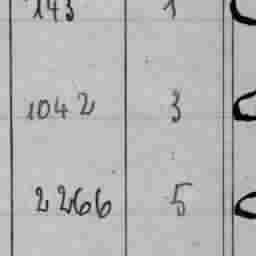 143 1
1042 3
2266 5